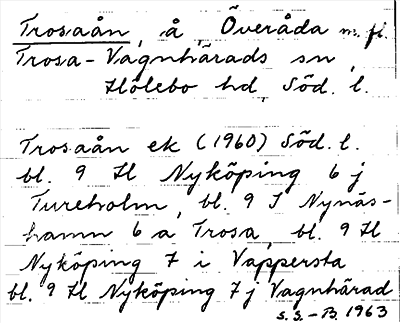 Trosaån, å, Överåda m. fl.
Trosa-Vagnhärads sn,
Hölebo hd, Söd. l.
Trosaån ek (1960) Söd. l.
bl. 9 H Nyköping 6 j
Tureholm, bl. 9 I Nynäs-
hamn 6 a Trosa, bl. 9 H
Nyköping 7 i Vappersta
bl. 9 H Nyköping 7 j Vagnhärad
S.S.-B. 1963